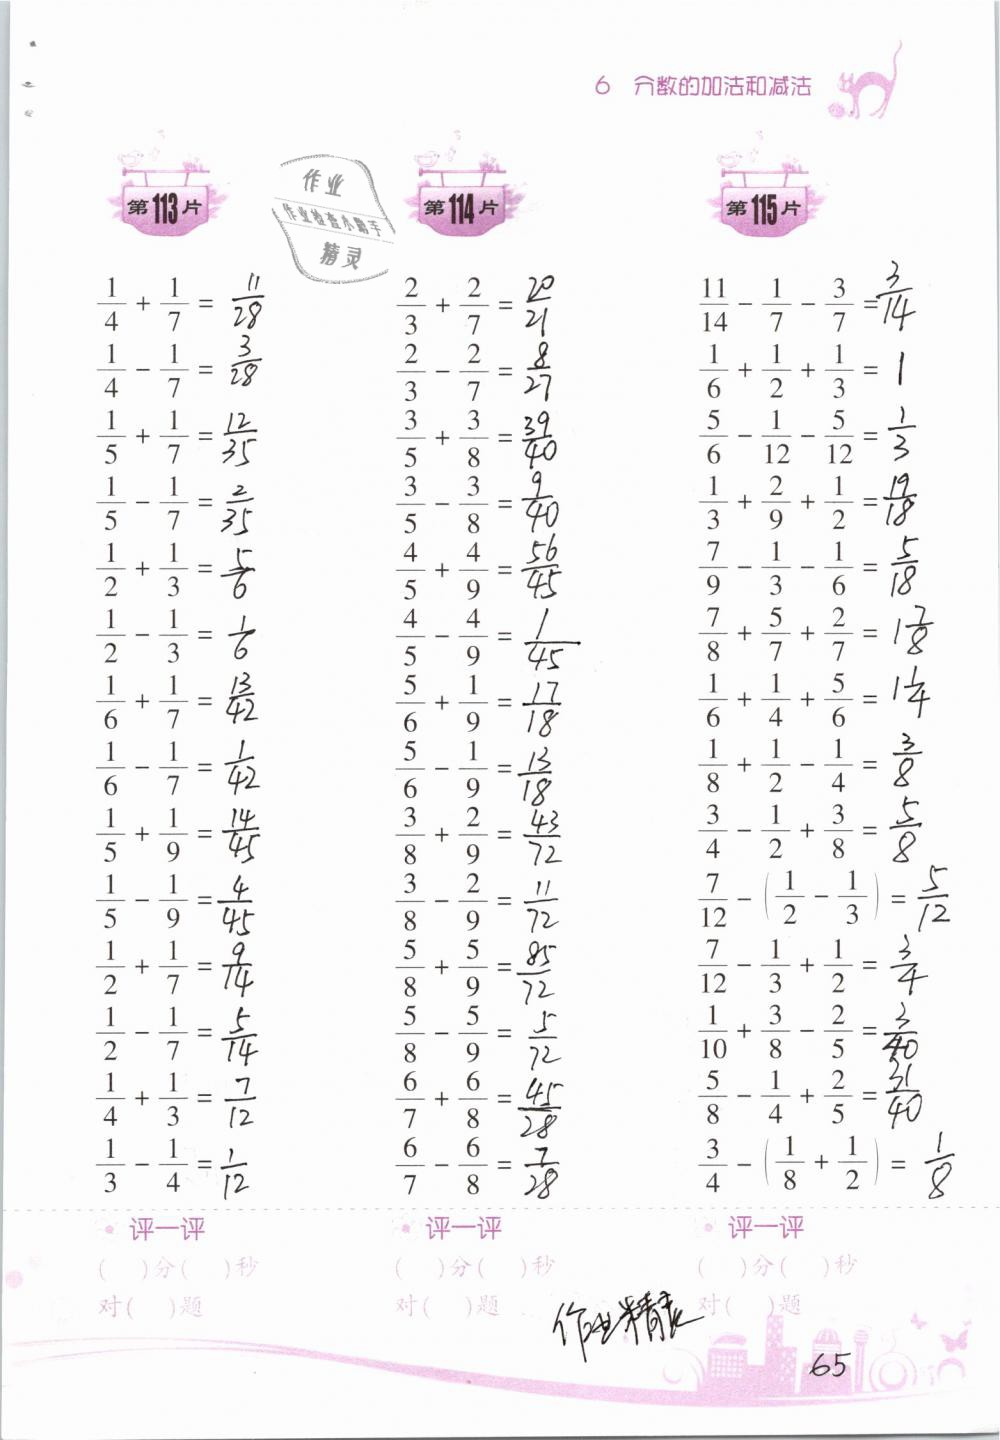 6 分数的加法和减法
作业
作业检查小助手
精灵
第113片
1/4 + 1/7 = 11/28
1/4 − 1/7 = 3/28
1/5 + 1/7 = 12/35
1/5 − 1/7 = 2/35
1/2 + 1/3 = 5/6
1/2 − 1/3 = 1/6
1/6 + 1/7 = 13/42
1/6 − 1/7 = 1/42
1/5 + 1/9 = 14/45
1/5 − 1/9 = 4/45
1/2 + 1/7 = 9/14
1/2 − 1/7 = 5/14
1/4 + 1/3 = 7/12
1/3 − 1/4 = 1/12
评一评
( )分( )秒
对( )题
第114片
2/3 + 2/7 = 20/21
2/3 − 2/7 = 8/27
3/5 + 3/8 = 39/40
3/5 − 3/8 = 9/40
4/5 + 4/9 = 56/45
4/5 − 4/9 = 1/45
5/6 + 1/9 = 17/18
5/6 − 1/9 = 13/18
3/8 + 2/9 = 43/72
3/8 − 2/9 = 11/72
5/8 + 5/9 = 85/72
5/8 − 5/9 = 5/72
6/7 + 6/8 = 45/28
6/7 − 6/8 = 7/28
评一评
( )分( )秒
对( )题
第115片
11/14 − 1/7 − 3/7 = 3/14
1/6 + 1/2 + 1/3 = 1
5/6 − 1/12 − 5/12 = 1/3
1/3 + 2/9 + 1/2 = 19/18
7/9 − 1/3 − 1/6 = 5/18
7/8 + 5/7 + 2/7 = 1 7/8
1/6 + 1/4 + 5/6 = 1 1/4
1/8 + 1/2 − 1/4 = 3/8
3/4 − 1/2 + 3/8 = 5/8
7/12 − (1/2 − 1/3) = 5/12
7/12 − 1/3 + 1/2 = 3/4
1/10 + 3/8 − 2/5 = 3/40
5/8 − 1/4 + 2/5 = 31/40
3/4 − (1/8 + 1/2) = 1/8
评一评
( )分( )秒
对( )题
作业精灵
65